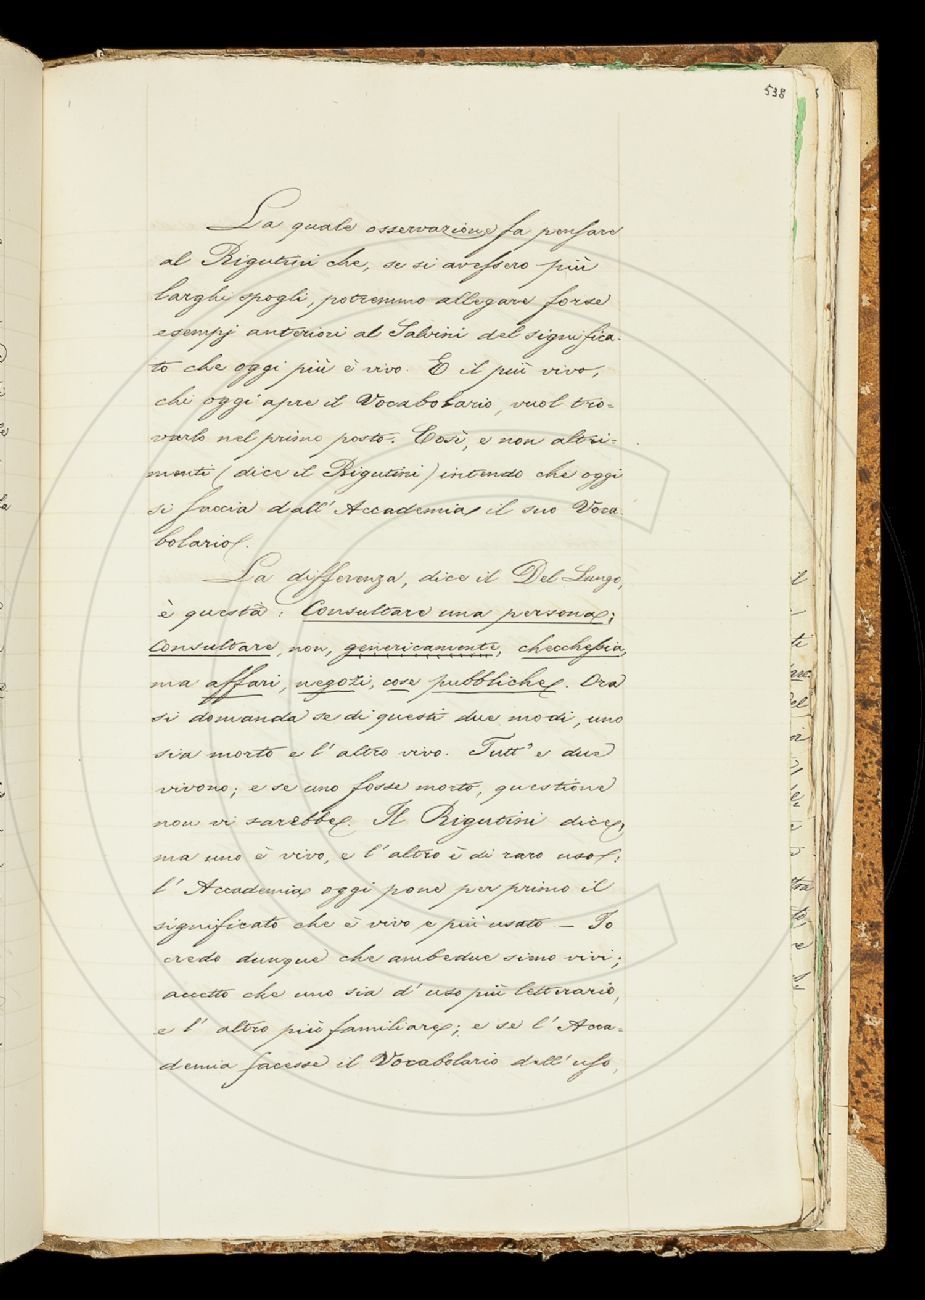 538
La quale osservazione fa pensare
al Rigutini che, se si avessero più
larghi spogli, potremmo allegare forse
esempj anteriori al Salvini del significa-
to che oggi più è vivo. E il più vivo,
chi oggi apre il Vocabolario, vuol tro-
varlo nel primo posto. Così, e non altri-
menti (dice il Rigutini) intendo che oggi
si faccia dall' Accademia il suo Voca
bolario.
La differenza, dice il Del Lungo,
è questa: Consultare una persona;
Consultare, non, genericamente, checchessia,
ma affari, negozi, cose pubbliche. Ora
si domanda se di questi due modi, uno
sia morto e l' altro vivo. Tutt' e due
vivono; e se uno fosse morto, questione
non vi sarebbe. Il Rigutini dice,
ma uno è vivo, e l' altro è di raro uso;
l' Accademia oggi pone per primo il
significato che è vivo e più usato — Io
credo dunque che ambedue sieno vivi;
accetto che uno sia d' uso più letterario,
e l' altro più familiare; e se l' Acca-
demia facesse il Vocabolario dell' uso,